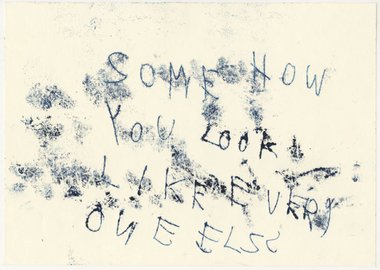 SOME HOW
YOU LOOK
LIKE EVERY
ONE ELSE